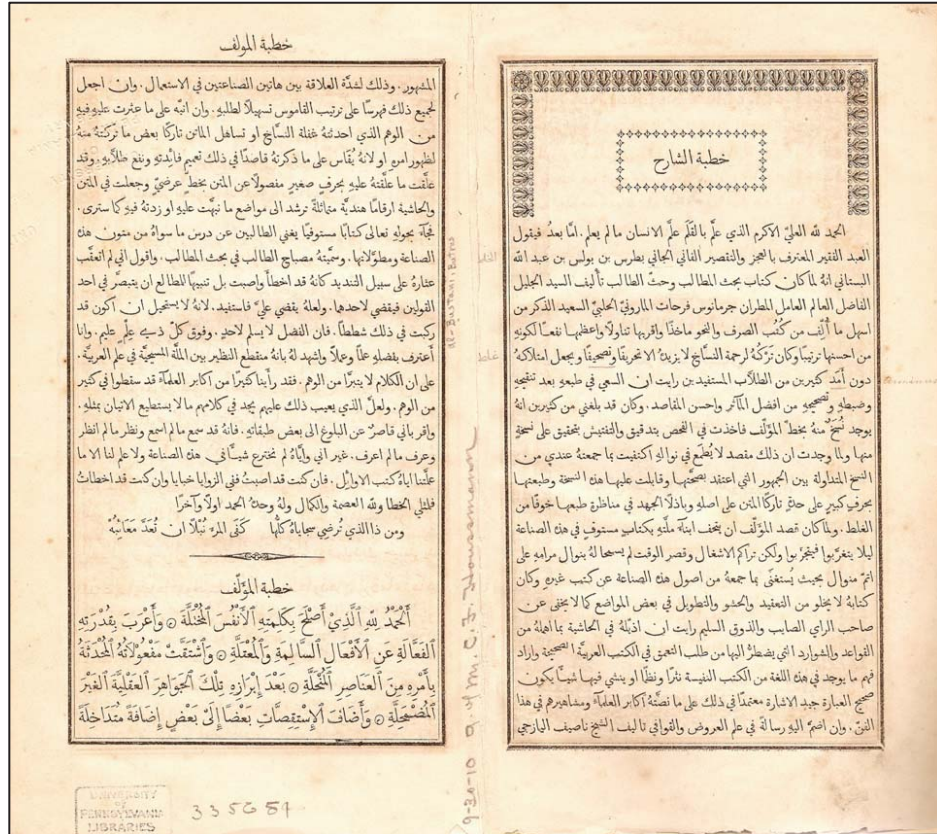 خطبة الشارح
الحمد لله العليّ الاكرم الذي علَّم بالقَلَم علَّم الانسان ما لم يعلم. امَّا بعدُ فيقول
العبد الفقير المعترف بالعجز والتقصير الفاني الجاني بطرس بن بولس بن عبد الله
البستاني انهُ لما كان كتاب بحث المطالب وحثّ الطالب تأليف السيد الجليل
الفاضل العالم العامل المطران جرمانوس فرحات المارونيّ الحلبيّ السعيد الذكر من
اسهل ما أُلِّف من كُتُب الصرف والنحو ماخذًا واقربها تناولًا واعظمها نفعًا لكونهِ
من احسنها ترتيبًا وكان تَرْكُهُ لرحمة النسَّاخ لا يزيدهُ الا تحريفًا وتصحيفًا ويجعل امتلاكهُ
دون أَمَد كثيرين من الطلَّاب المستفيدين رايت ان السعي في طبعهِ بعد تنقيحهِ
وضبطهِ وتصحيحهِ من افضل المآثر واحسن المقاصد. وكان قد بلغني من كثيرين انهُ
يوجد نُسَخٌ منهُ بخطّ المؤلّف فاخذت في الفحص بتدقيق والتفتيش بتحقيق على نسخةٍ
منها ولما وجدت ان ذلك مقصد لا يُطمَع في نوالهِ اكتفيت بما جمعتهُ عندي من
النسخ المتداولة بين الجمهور التي اعتقد بصحتها وقابلت عليها هذه النسخة وطبعتها
بحرفٍ كبيرٍ على حدةٍ تاركًا المتن على اصلهِ وباذلًا الجهد في مناظرة طبعها خوفًا من
الغلط. ولما كان قصد المؤلّف ان يتحف ابناءَ ملَّتهِ بكتابٍ مستوفٍ في هذه الصناعة
ليلا يتغرَّبوا فيتجرَّبوا ولكن تراكم الاشغال وقصر الوقت لم يسمحا لهُ بنوال مرامهِ على
اتمّ منوال بحيث يُستغنَى بما جمعهُ من اصول هذه الصناعة عن كتب غيرهِ وكان
كتابهُ لا يخلو من التعقيد والحشو والتطويل في بعض المواضع كما لا يخفى عن
صاحب الراي الصايب والذوق السليم رايت ان اذيّلهُ في الحاشية بما اهملهُ من
القواعد والشوارد التي يضطرُّ اليها من طلب التعمق في الكتب العربية الصحيحة واراد
فهم ما يوجد في هذه اللغة من الكتب النفيسة نثرًا ونظمًا او ينشي فيها شيئًا يكون
صحيح العبارة جيد الاشارة معتمدًا في ذلك على ما نصَّتهُ اكابر العلماءِ ومشاهيرهم في هذا
الفنّ. وان اضمَّ اليهِ رسالةً في علم العروض والقوافي تاليف الشيخ ناصيف اليازجي
خطبة المولف
المشهور. وذلك لشدَّة العلاقة بين هاتين الصناعتين في الاستعمال. وان اجعل
لجميع ذلك فهرسًا على ترتيب القاموس تسهيلًا لطلبهِ. وان انبّه على ما عثرت عليهِ فيهِ
من الوهم الذي احدثتهُ غفلة النسَّاخ او تساهل الماتن تاركًا بعض ما تركتهُ منهُ
لظهور امرهِ او لانهُ يُقاس على ما ذكرتهُ قاصدًا في ذلك تعميم فائدتهِ ونفع طلَّابهِ. وقد
علَّقت ما علَّقتهُ عليهِ بحرفٍ صغير مفصولًا عن المتن بخطٍّ عرضيٍّ وجعلت في المتن
والحاشية ارقامًا هنديَّة متماثلة ترشد الى مواضع ما نبَّهت عليهِ او زدتهُ فيهِ كما سترى.
فجآءَ بحولهِ تعالى كتابًا مستوفيًا يغني الطالبين عن درس ما سواهُ من متون هذه
الصناعة ومطوَّلاتها. وسمَّيتهُ مصباح الطالب في بحث المطالب. واقول اني لم اتعقَّب
عثارهُ على سبيل التنديد كانهُ قد اخطأَ واصبت بل تنبيهًا للطالع ان يتبصَّر في احد
القولين فيقضي لاحدها. ولعلهُ يقضي عليَّ فاستفيد. لانهُ لا يستحيل ان اكون قد
ركبت في ذلك شططًا. فان الفضل لا يسلم لاحدٍ. وفوق كلّ ذي علمٍ عليم. وانا
أعترف بفضلهِ علمًا وعملًا واشهد لهُ بانهُ منقطع النظير بين الملَّة المسيحيَّة في علم العربيَّة.
على ان الكلام لا يتبرَّا من الوهم. فقد رأَينا كثيرًا من اكابر العلماءِ قد سقطوا في كثير
من الوهم. ولعلَّ الذي يعيب ذلك عليهم يجد في كلامهم ما لا يستطيع الاتيان بمثلهِ.
واقر باني قاصرٌ عن البلوغ الى بعض طبقاتهِ. فانهُ قد سمع ما لم اسمع ونظر ما لم انظر
وعرف ما لم اعرف. غير اني وايَّاهُ لم نخترع شيئًا في هذه الصناعة ولا علم لنا الا ما
علَّمنا اياهُ كتب الاوايِل. فان كنت قد اصبتُ ففي الزوايا خبايا وان كنت قد اخطاتُ
فلمثلي الخطا ولله العصمة والكمال ولهُ وحدهُ الحمد اولًا وآخرًا
ومن ذا الذي تُرضي سجاياهُ كلُّها كَفَى المرءَ نُبْلًا ان تُعَدَّ مَعَايِبُهْ
خطبة المؤلّف
أَلْحَمْدُ لِلّٰهِ ٱلَّذِي أَصْلَحَ بِكَلِمَتِهِ ٱلْأَنْفُسَ ٱلْمُخْتَلَّةَ ۞ وَأَعْرَبَ بِقُدْرَتِهِ
ٱلْفَعَّالَةِ عَنِ ٱلْأَفْعَالِ ٱلسَّالِمَةِ وَٱلْمُعْتَلَّةِ ۞ وَٱشْتَقَّتْ مَفْعُولَاتُهُ ٱلْمُحْدَثَةُ
بِأَمْرِهِ مِنَ ٱلْعَنَاصِرِ ٱلْمُنْحَلَّةِ ۞ بَعْدَ إِبْرَازِهِ تِلْكَ ٱلْجَوَاهِرَ ٱلْعَقْلِيَّةَ ٱلْغَيْرَ
ٱلْمُضْمَحِلَّةِ ۞ وَأَضَافَ ٱلْإِسْتِقِصَّاتِ بَعْضًا إِلَى بَعْضٍ إِضَافَةً مُتَدَاخِلَةً
Al-Bustani, Butros
9-30-10
UNIVERSITY
OF
PENNSYLVANIA
LIBRARIES
335687